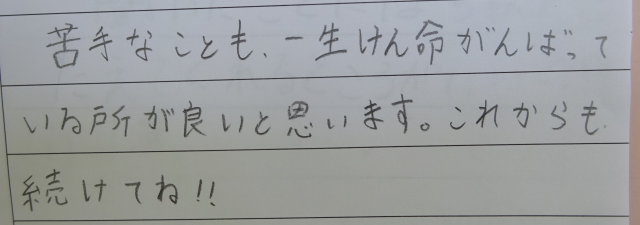 苦手なことも、一生けん命がんばって
いる所が良いと思います。これからも
続けてね!!